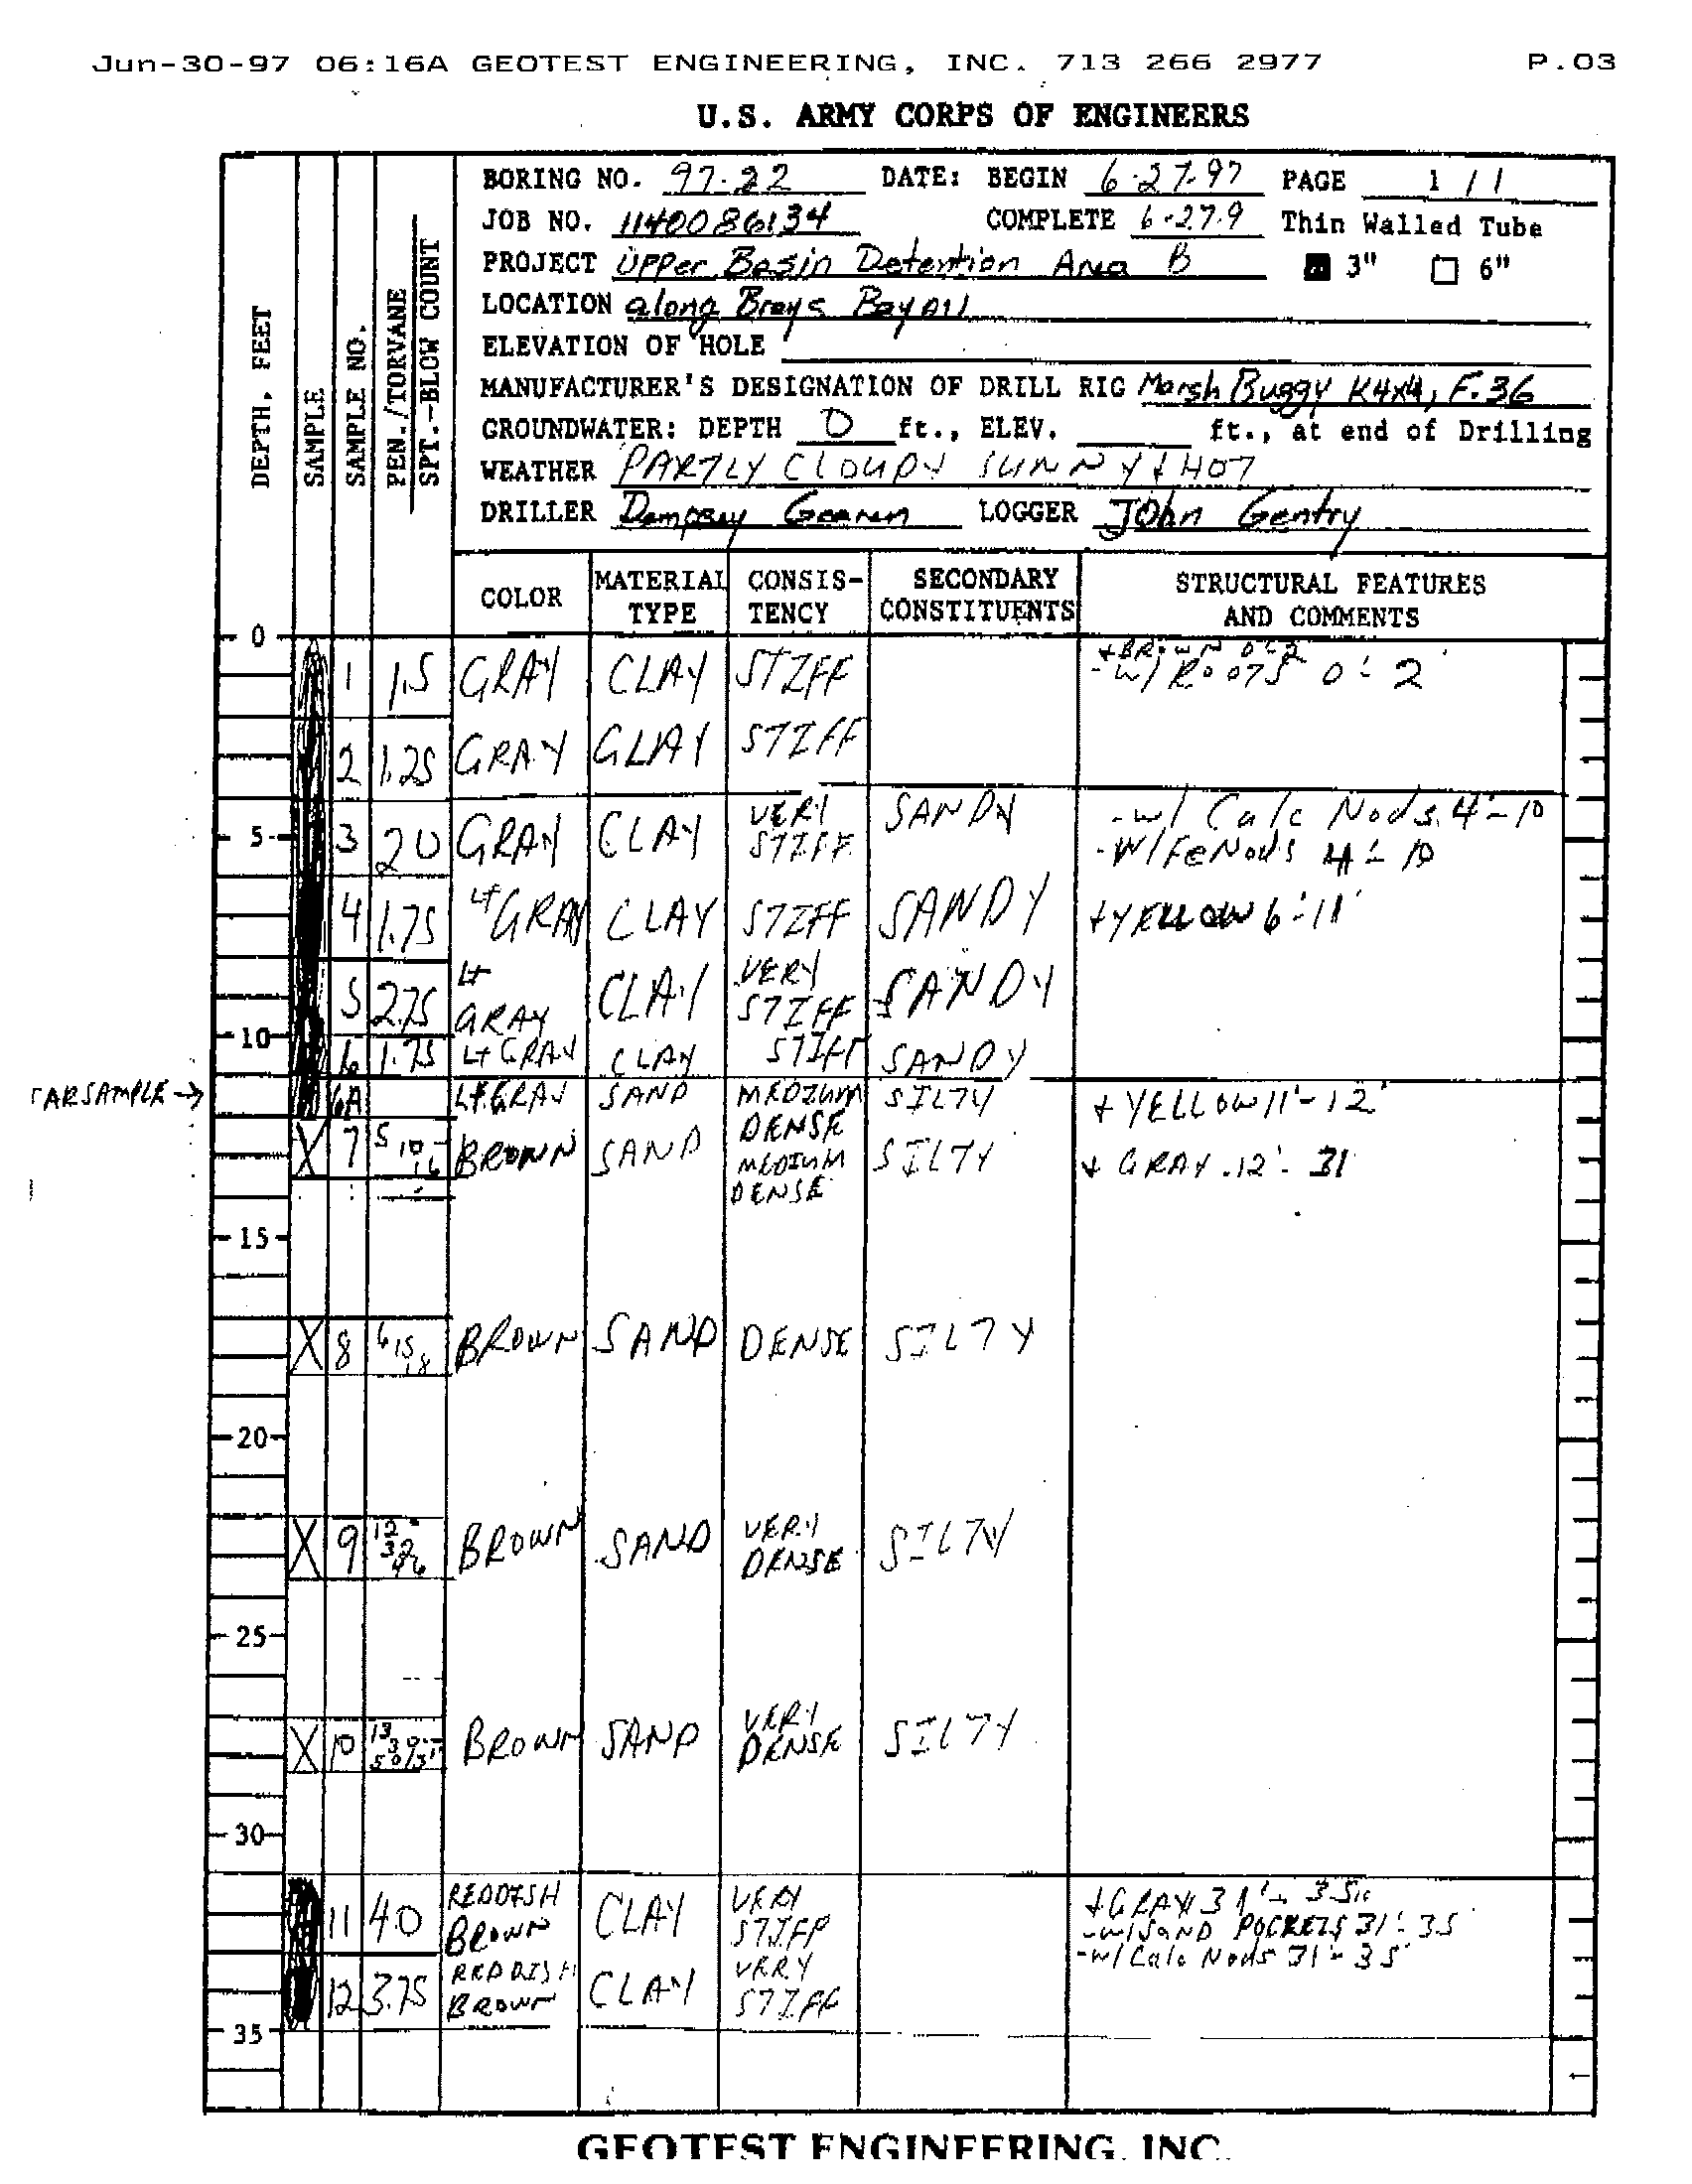 Jun-30-97 06:16A GEOTEST ENGINEERING, INC. 713 266 2977 P.03
U.S. ARMY CORPS OF ENGINEERS
BORING NO. 97-22 DATE: BEGIN 6-27-97 PAGE 1 / 1
JOB NO. 1140086134 COMPLETE 6-27-9 Thin Walled Tube
PROJECT Upper Basin Detention Area B 3" 6"
LOCATION along Brays Bayou
ELEVATION OF HOLE
MANUFACTURER'S DESIGNATION OF DRILL RIG Marsh Buggy K4x4, F-36
GROUNDWATER: DEPTH 0 ft., ELEV. ft., at end of Drilling
WEATHER PARTLY CLOUDY SUNNY & HOT
DRILLER Dempsey LOGGER John Gentry
DEPTH, FEET
SAMPLE
SAMPLE NO.
PEN./TORVANE
SPT.-BLOW COUNT
COLOR MATERIAL TYPE CONSISTENCY SECONDARY CONSTITUENTS STRUCTURAL FEATURES AND COMMENTS
0
+BROWN 0-2
1 1.5 GRAY CLAY STIFF -w/ ROOTS 0'-2'
2 1.25 GRAY CLAY STIFF
5 3 2.0 GRAY CLAY VERY STIFF SANDY -w/ Calc Nods. 4'-10
-w/FeNods 4'-10
4 1.75 LT GRAY CLAY STIFF SANDY +YELLOW 6'-11'
5 2.75 LT GRAY CLAY VERY STIFF SANDY
10 6 1.75 LT GRAY CLAY STIFF SANDY
JAR SAMPLE → 6A LT. GRAY SAND MEDIUM DENSE SILTY + YELLOW 11'-12'
7 5 10 16 BROWN SAND MEDIUM DENSE SILTY + GRAY 12'-31'
15
8 6 15 18 BROWN SAND DENSE SILTY
20
9 12 32 46 BROWN SAND VERY DENSE SILTY
25
10 13 39 50/5" BROWN SAND VERY DENSE SILTY
30
11 4.0 REDDISH BROWN CLAY VERY STIFF +GRAY 31'-35'
-w/SAND POCKETS 31'-35
-w/Calc Nods 31'-35'
12 3.75 REDDISH BROWN CLAY VERY STIFF
35
GEOTEST ENGINEERING, INC.